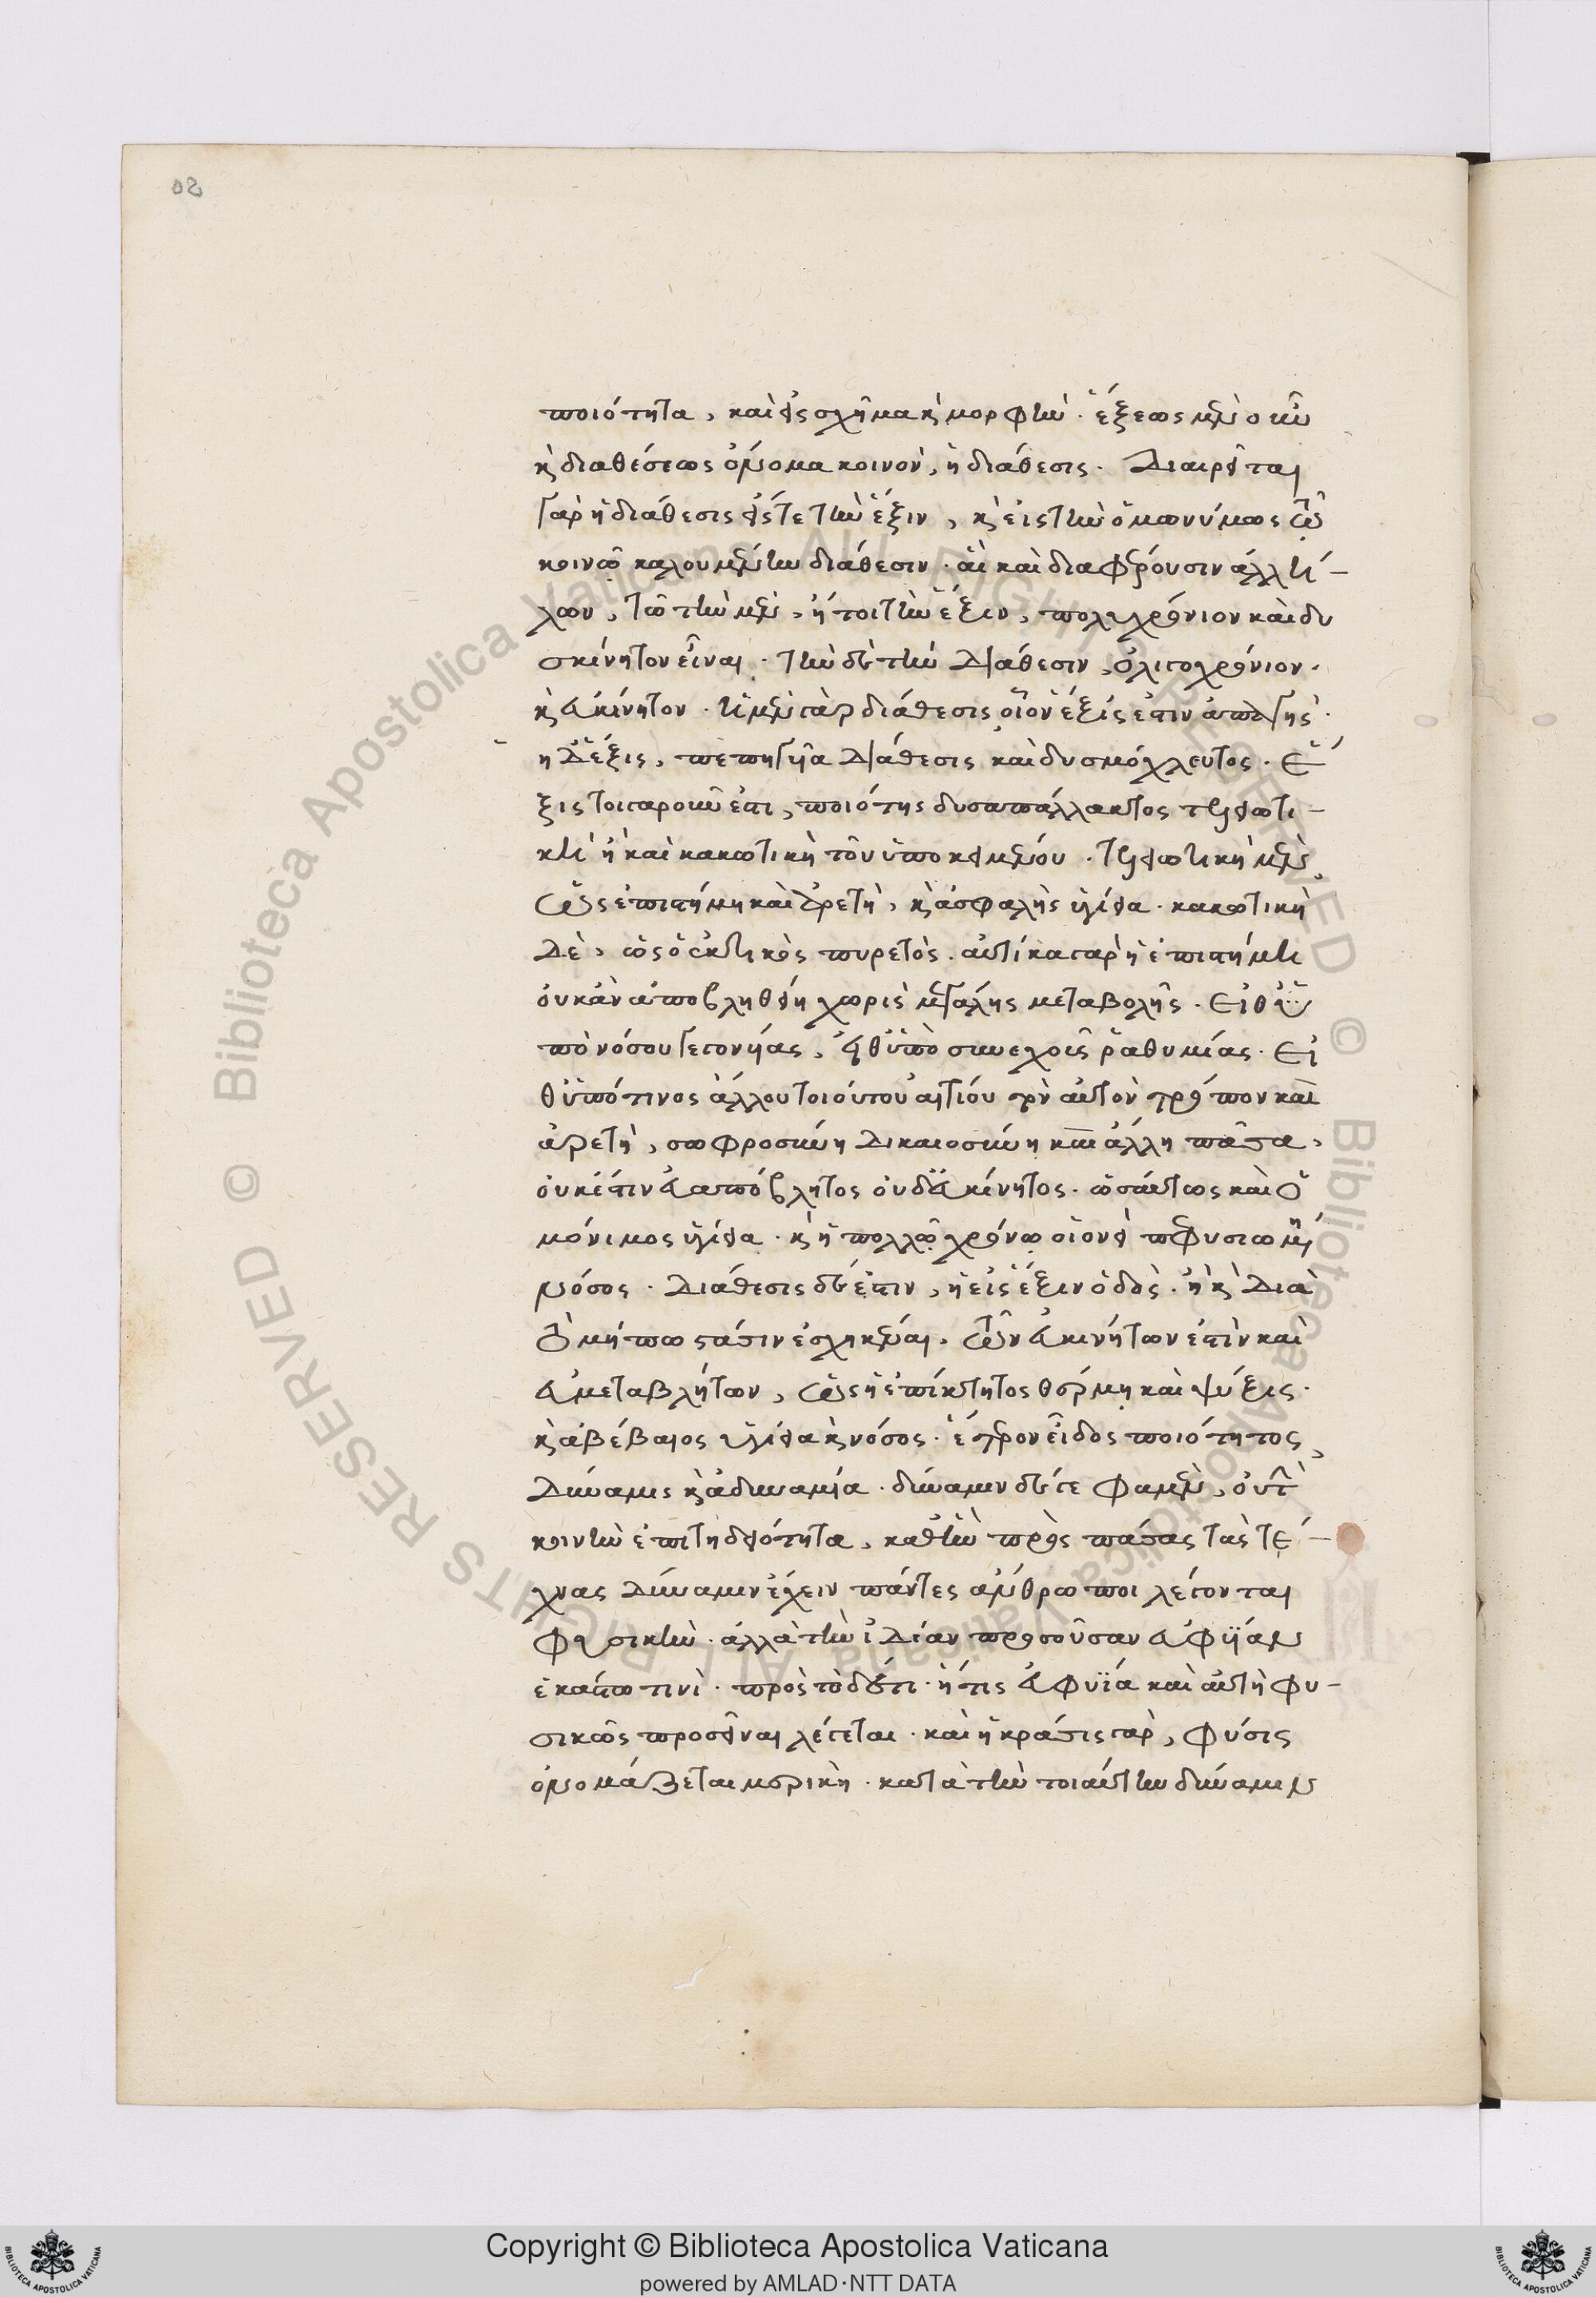 ποιότητα, καὶ εἰς σχῆμα κ μορφήν. ἕξεως μὲν οὖν
κ διαθέσεως ὄνομα κοινὸν, ἡ διάθεσις. Διαιρεῖται
γὰρ ἡ διάθεσις εἴς τε τὴν ἕξιν, κ εἰς τὴν ὁμωνύμως τῶ
κοινῷ καλουμένην διάθεσιν. αἳ καὶ διαφέρουσιν ἀλλή-
λων, τῶ τὴν μὲν, ἤτοι τὴν ἕξιν, πολυχρόνιον καὶ δυ
σκίνητον εἶναι. τὴν δὲ τὴν διάθεσιν, ὀλιγοχρόνιον.
κ ἀκίνητον. ἡ μὲν γὰρ διάθεσις οἷον ἕξίς ἐστιν
ἡ δ' ἕξις, πεπηγυῖα διάθεσις καὶ δυσμόχλευτος. Ἕ
ξις τοιγαροῦν ἐστι, ποιότης δυσαπάλλακτος τελειωτι-
κὴ ἢ καὶ κακωτικὴ τοῦ ὑποκειμένου. τελειωτικὴ μὲν,
ὡς ἐπιστήμη καὶ ἀρετὴ, κ ἀσφαλὴς ὑγίεια. κακωτικὴ
δὲ, ὡς ὁ ἑκτικὸς πυρετὸς. αὐτίκα γὰρ ἡ ἐπιστήμη
οὐκ ἂν ἀποβληθείη χωρὶς μεγάλης μεταβολῆς. Εἴθ' ὑ
πὸ νόσου γεγονυίας, εἴθ' ὑπὸ συνεχοῦς ῥαθυμίας. Εἴ
θ' ὑπό τινος ἄλλου τοιούτου αἰτίου τὸν αὐτὸν τρόπον καὶ
ἀρετὴ, σωφροσύνη δικαιοσύνη καὶ ἄλλη πᾶσα,
οὐκ ἔστιν ἀπόβλητος οὐδ' ἀκίνητος. ὡσαύτως καὶ ἡ
μόνιμος ὑγίεια. κ ἡ πολλῷ χρόνῳ οἱονεὶ πεφυσιωμένη
νόσος. Διάθεσις δέ ἐστιν, ἡ εἰς ἕξιν ὁδὸς. ἣ κ διὰ
τὸ μήπω στάσιν ἐσχηκέναι, τῶν ἀκινήτων ἐστὶν καὶ
ἀμεταβλήτων, ὡς ἡ ἐπίκτητος θέρμη καὶ ψύξις.
κ ἀβέβαιος ὑγίεια κ νόσος. ἕτερον εἶδος ποιότητος,
δύναμις κ ἀδυναμία. δύναμιν δέ γε φαμὲν, οὐ τὴν
κοινὴν ἐπιτηδειότητα, καθ' ἣν πρὸς πάσας τὰς τέ-
χνας δύναμιν ἔχειν πάντες ἄνθρωποι λέγονται
φυσικὴν. ἀλλὰ τὴν ἰδίαν προσοῦσαν εὐφυΐαν
ἑκάστῳ τινὶ. πρὸς τόδε τι. ἥτις εὐφυΐα καὶ αὐτὴ φυ-
σικῶς προσεῖναι λέγεται. καὶ ἡ κρᾶσις γὰρ, φύσις
ὀνομάζεται μερικὴ. κατὰ τὴν τοιαύτην δύναμιν
Copyright © Biblioteca Apostolica Vaticana
powered by AMLAD·NTT DATA